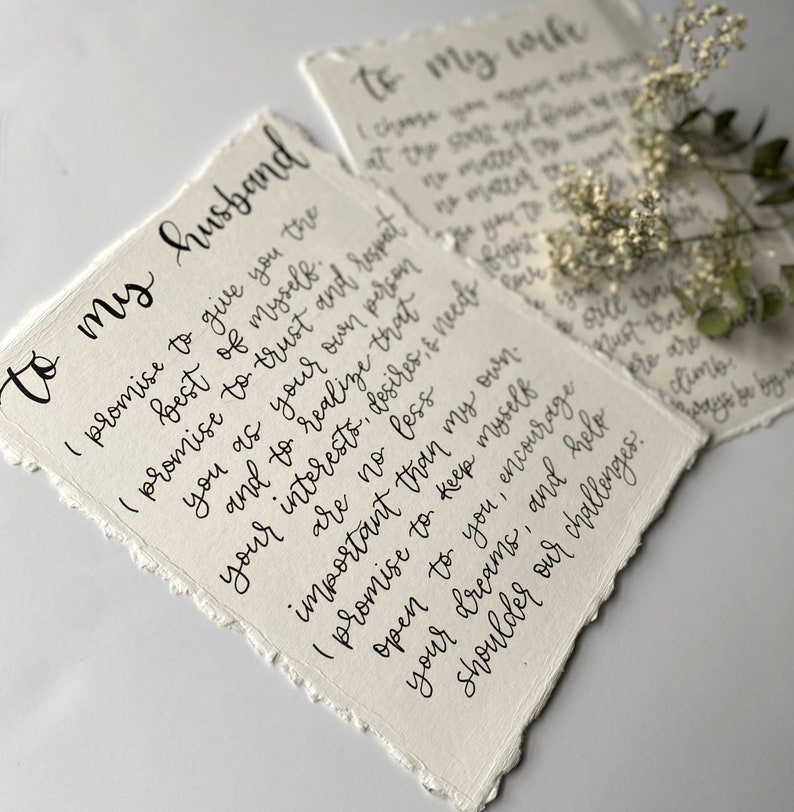 to my husband
I promise to give you the
best of myself.
I promise to trust and respect
you as your own person
and to realize that
your interests, desires, & needs
are no less
important than my own.
I promise to keep myself
open to you, encourage
your dreams, and help
shoulder our challenges.
to my wife
I choose you again and
at the start and finish of
no matter the
no matter the
you to
fight
love
you
still
must
are
climb.
always be by